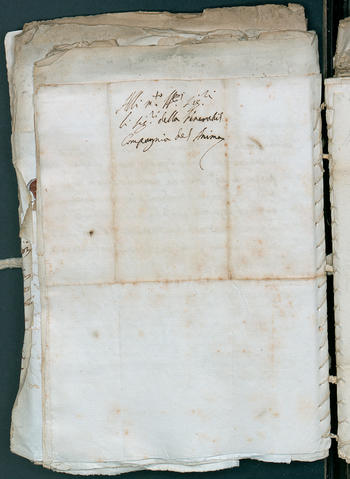 Alli m.to Ill.ri Sig.ri
li Sig.ri della Venerabil
Compagnia del Anime